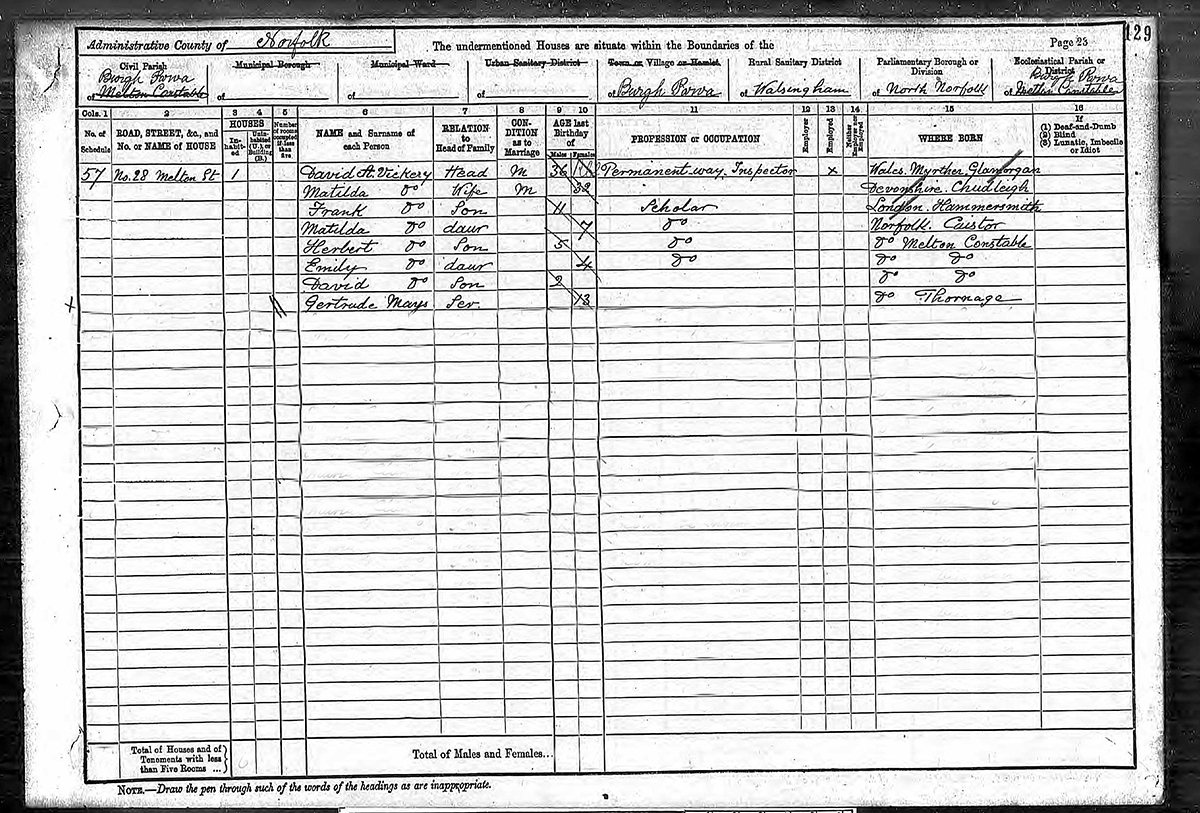 129
Administrative County of Norfolk The undermentioned Houses are situate within the Boundaries of the Page 23
Civil Parish Municipal Borough Municipal Ward Urban Sanitary District Town or Village or Hamlet Rural Sanitary District Parliamentary Borough or Division Ecclesiastical Parish or District
Burgh Parva Burgh Parva
of Melton Constable of of of of Burgh Parva of Walsingham of North Norfolk of Melton Constable
Cols. 1 2 3 4 5 6 7 8 9 10 11 12 13 14 15 16
No. of Schedule ROAD, STREET, &c., and No. or NAME of HOUSE HOUSES In-habit-ed Unin-habited (U.), or Building (B.) Number of rooms occupied if less than five NAME and Surname of each Person RELATION to Head of Family CON-DITION as to Marriage AGE last Birthday of Males Females PROFESSION or OCCUPATION Employer Employed Neither Employer nor Employed WHERE BORN If (1) Deaf-and-Dumb (2) Blind (3) Lunatic, Imbecile or Idiot
57 No. 28 Melton St 1 David H. Vickery Head M 36 Permanent way Inspector x Wales. Myrther Glamorgan
Matilda Do Wife M 32 Devonshire. Chudleigh
Frank Do Son 11 Scholar London. Hammersmith
Matilda Do daur 7 Do Norfolk. Caistor
Herbert Do Son 5 Do Do Melton Constable
Emily Do daur 4 Do Do Do
David Do Son 2 Do Do
x Gertrude Mays Ser. 13 Do Thornage
Total of Houses and of Tenements with less than Five Rooms ... Total of Males and Females...
NOTE.—Draw the pen through such of the words of the headings as are inappropriate.